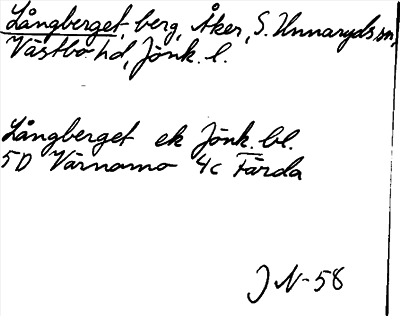 Långberget, berg, Åker, S. Unnaryds sn,
Västbo hd, Jönk. l.
Långberget ek Jönk. bl.
5D Värnamo 4c Färda
J N-58